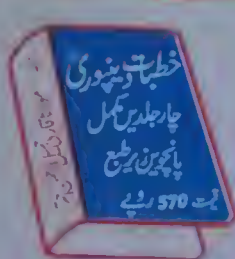 خطبات دینپوری
چار جلدیں مکمل
پانچویں زیر طبع
قیمت 570 روپے